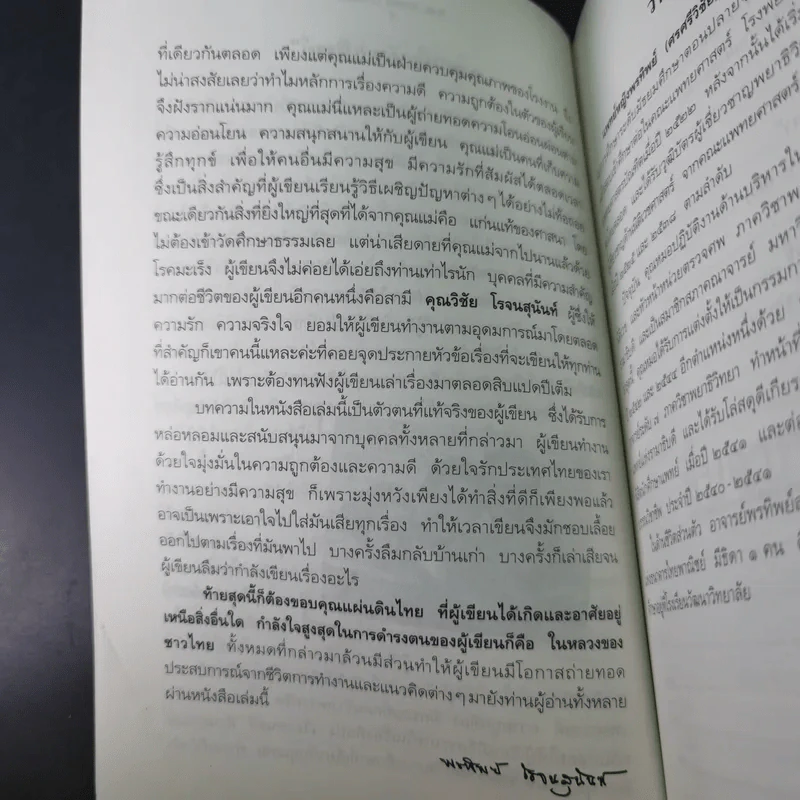 ที่เดียวกันตลอด เพียงแต่คุณแม่เป็นฝ่ายควบคุมคุณภาพของโรงงาน จึง
ไม่น่าสงสัยเลยว่าทำไมหลักการเรื่องความดี ความถูกต้องในตัวของผู้เขียน
จึงฝังรากแน่นมาก คุณแม่นี่แหละเป็นผู้ถ่ายทอดความโอนอ่อนผ่อนตาม
ความอ่อนโยน ความสนุกสนานให้กับผู้เขียน คุณแม่เป็นคนที่เก็บความ
รู้สึกทุกข์ เพื่อให้คนอื่นมีความสุข มีความรักที่สัมผัสได้ตลอดเวลา
ซึ่งเป็นสิ่งสำคัญที่ผู้เขียนเรียนรู้วิธีเผชิญปัญหาต่าง ๆ ได้อย่างไม่ท้อถอย
ขณะเดียวกันสิ่งที่ยิ่งใหญ่ที่สุดที่ได้จากคุณแม่คือ แก่นแท้ของศาสนา โดย
ไม่ต้องเข้าวัดศึกษาธรรมเลย แต่น่าเสียดายที่คุณแม่จากไปนานแล้วด้วย
โรคมะเร็ง ผู้เขียนจึงไม่ค่อยได้เอ่ยถึงท่านเท่าไรนัก บุคคลที่มีความสำคัญ
มากต่อชีวิตของผู้เขียนอีกคนหนึ่งคือสามี คุณวิชัย โรจนสุนันท์ ผู้ซึ่งให้
ความรัก ความจริงใจ ยอมให้ผู้เขียนทำงานตามอุดมการณ์มาโดยตลอด
ที่สำคัญก็เขาคนนี้แหละค่ะที่คอยจุดประกายหัวข้อเรื่องที่จะเขียนให้ทุกท่าน
ได้อ่านกัน เพราะต้องทนฟังผู้เขียนเล่าเรื่องมาตลอดสิบแปดปีเต็ม
บทความในหนังสือเล่มนี้เป็นตัวตนที่แท้จริงของผู้เขียน ซึ่งได้รับการ
หล่อหลอมและสนับสนุนมาจากบุคคลทั้งหลายที่กล่าวมา ผู้เขียนทำงาน
ด้วยใจมุ่งมั่นในความถูกต้องและความดี ด้วยใจรักประเทศไทยของเรา
ทำงานอย่างมีความสุข ก็เพราะมุ่งหวังเพียงได้ทำสิ่งที่ดีก็เพียงพอแล้ว
อาจเป็นเพราะเอาใจไปใส่มันเสียทุกเรื่อง ทำให้เวลาเขียนจึงมักชอบเลื้อย
ออกไปตามเรื่องที่มันพาไป บางครั้งลืมกลับบ้านเก่า บางครั้งก็เล่าเสียจน
ผู้เขียนลืมว่ากำลังเขียนเรื่องอะไร
ท้ายสุดนี้ก็ต้องขอบคุณแผ่นดินไทย ที่ผู้เขียนได้เกิดและอาศัยอยู่
เหนือสิ่งอื่นใด กำลังใจสูงสุดในการดำรงตนของผู้เขียนก็คือ ในหลวงของ
ชาวไทย ทั้งหมดที่กล่าวมาล้วนมีส่วนทำให้ผู้เขียนมีโอกาสถ่ายทอด
ประสบการณ์จากชีวิตการทำงานและแนวคิดต่าง ๆ มายังท่านผู้อ่านทั้งหลาย
ผ่านหนังสือเล่มนี้
พรทิพย์ โรจนสุนันท์
แพทย์หญิงพรทิพย์ (ศรศรีวิชัย
ศึกษาระดับมัธยมศึกษาตอนปลาย
ศึกษาต่อในคณะแพทยศาสตร์ โรงพยา
เมื่อปี ๒๕๒๒ หลังจากนั้นได้เริ่ม
และได้รับวุฒิบัตรผู้เชี่ยวชาญพยาธิวิ
จากคณะแพทยศาสตร์
และ ๒๕๓๘ ตามลำดับ
ปัจจุบัน คุณหมอปฏิบัติงานด้านบริหารใน
และหัวหน้าหน่วยตรวจศพ ภาควิชาพ
และเป็นสมาชิกสภาคณาจารย์ มหาวิ
คุณหมอได้รับการแต่งตั้งให้เป็นกรรมการ
และ ๒๕๔๔ อีกตำแหน่งหนึ่งด้วย
ภาควิชาพยาธิวิทยา ทำหน้าที่
และได้รับโล่สดุดีเกียร
เมื่อปี ๒๕๔๑ และต่อ
ประจำปี ๒๕๔๐-๒๕๔๑
ในด้านชีวิตส่วนตัว อาจารย์พรทิพย์ส
ธนาคารไทยพาณิชย์ มีธิดา ๑ คน
โรงเรียนวัฒนาวิทยาลัย